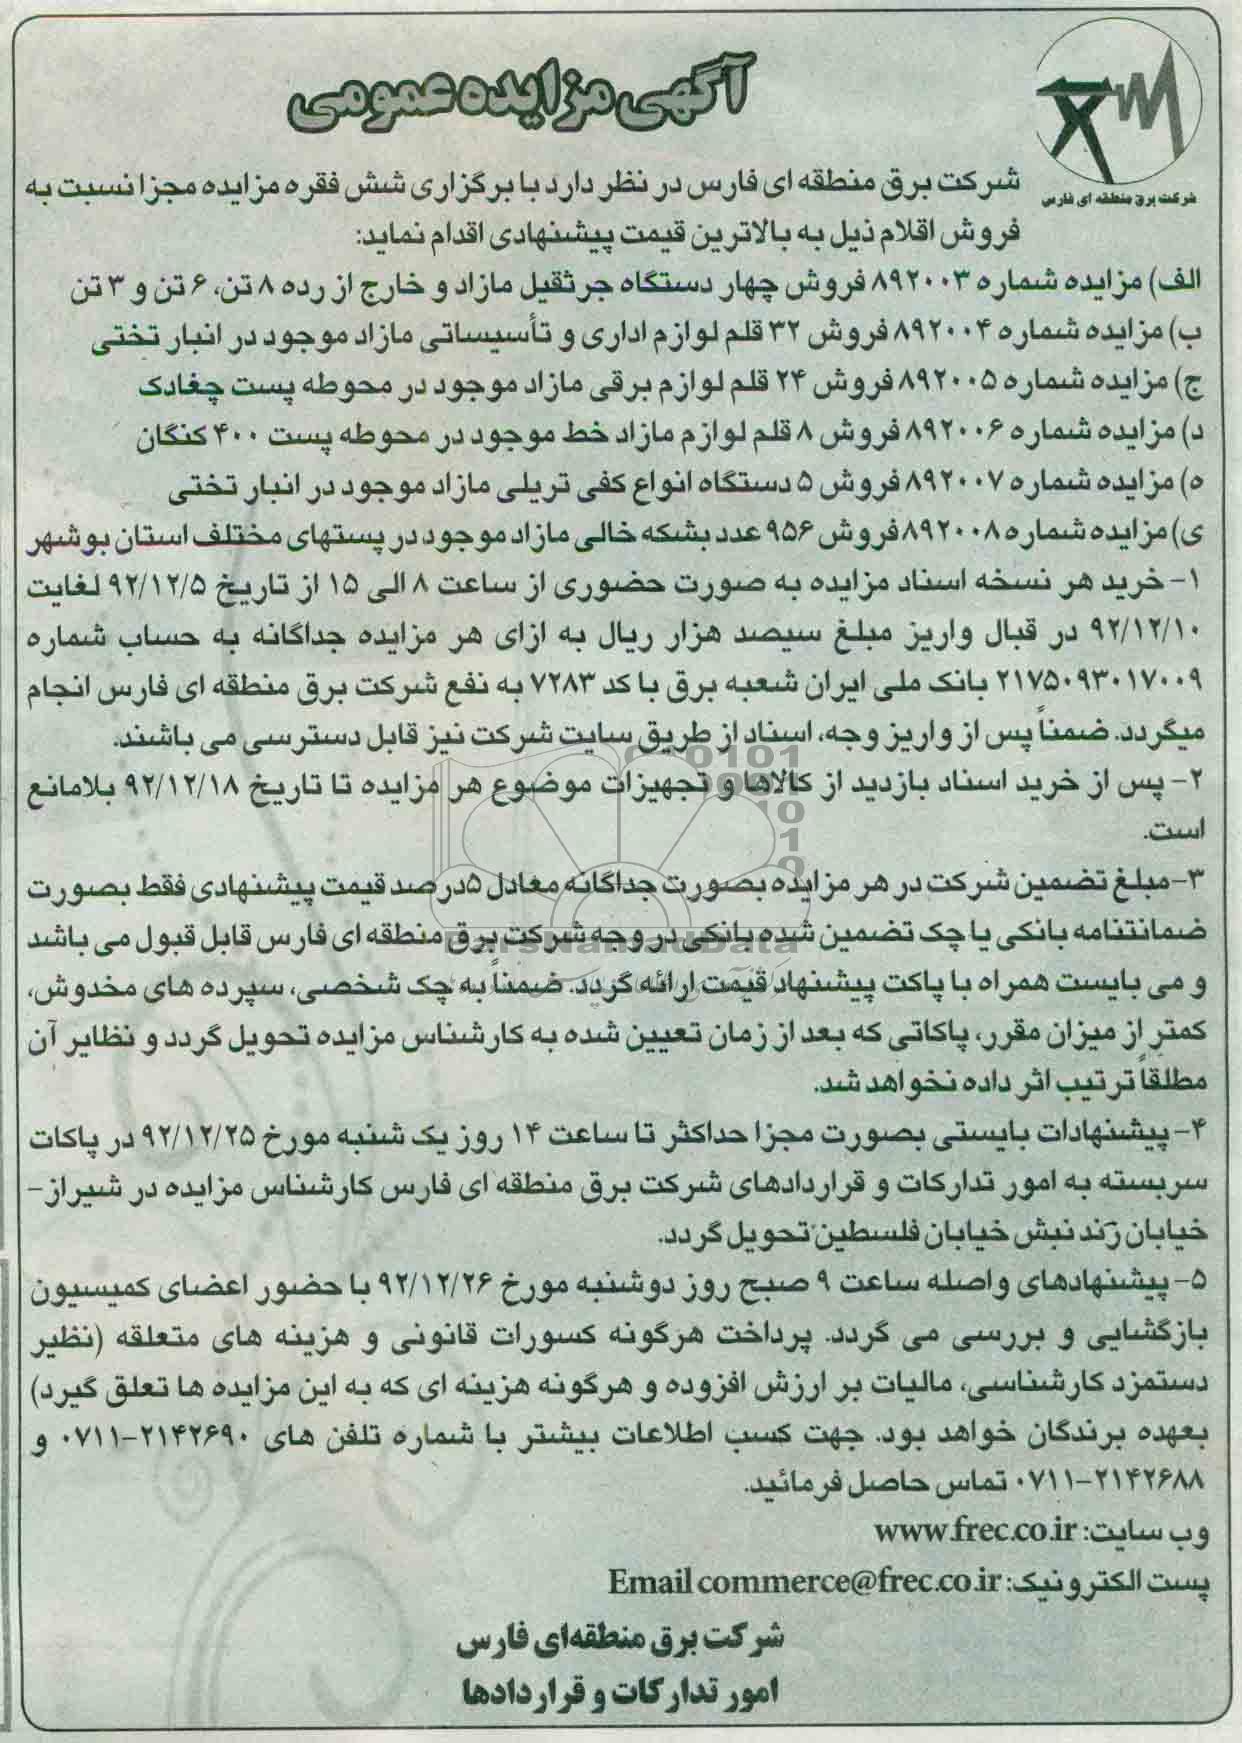 آگهی مزایده عمومی
شرکت برق منطقه ای فارس
شرکت برق منطقه ای فارس در نظر دارد با برگزاری شش فقره مزایده مجزا نسبت به
فروش اقلام ذیل به بالاترین قیمت پیشنهادی اقدام نماید:
الف) مزایده شماره ۸۹۲۰۰۳ فروش چهار دستگاه جرثقیل مازاد و خارج از رده ۸ تن، ۶ تن و ۳ تن
ب) مزایده شماره ۸۹۲۰۰۴ فروش ۳۲ قلم لوازم اداری و تأسیساتی مازاد موجود در انبار تختی
ج) مزایده شماره ۸۹۲۰۰۵ فروش ۲۴ قلم لوازم برقی مازاد موجود در محوطه پست چغادک
د) مزایده شماره ۸۹۲۰۰۶ فروش ۸ قلم لوازم مازاد خط موجود در محوطه پست ۴۰۰ کنگان
ه) مزایده شماره ۸۹۲۰۰۷ فروش ۵ دستگاه انواع کفی تریلی مازاد موجود در انبار تختی
ی) مزایده شماره ۸۹۲۰۰۸ فروش ۹۵۶ عدد بشکه خالی مازاد موجود در پستهای مختلف استان بوشهر
۱- خرید هر نسخه اسناد مزایده به صورت حضوری از ساعت ۸ الی ۱۵ از تاریخ ۹۲/۱۲/۵ لغایت
۹۲/۱۲/۱۰ در قبال واریز مبلغ سیصد هزار ریال به ازای هر مزایده جداگانه به حساب شماره
۲۱۷۵۰۹۳۰۱۷۰۰۹ بانک ملی ایران شعبه برق با کد ۷۲۸۳ به نفع شرکت برق منطقه ای فارس انجام
میگردد. ضمناً پس از واریز وجه، اسناد از طریق سایت شرکت نیز قابل دسترسی می باشند.
۲- پس از خرید اسناد بازدید از کالاها و تجهیزات موضوع هر مزایده تا تاریخ ۹۲/۱۲/۱۸ بلامانع
است.
۳- مبلغ تضمین شرکت در هر مزایده بصورت جداگانه معادل ۵درصد قیمت پیشنهادی فقط بصورت
ضمانتنامه بانکی یا چک تضمین شده بانکی در وجه شرکت برق منطقه ای فارس قابل قبول می باشد
و می بایست همراه با پاکت پیشنهاد قیمت ارائه گردد. ضمناً به چک شخصی، سپرده های مخدوش،
کمتر از میزان مقرر، پاکاتی که بعد از زمان تعیین شده به کارشناس مزایده تحویل گردد و نظایر آن
مطلقاً ترتیب اثر داده نخواهد شد.
۴- پیشنهادات بایستی بصورت مجزا حداکثر تا ساعت ۱۴ روز یک شنبه مورخ ۹۲/۱۲/۲۵ در پاکات
سربسته به امور تدارکات و قراردادهای شرکت برق منطقه ای فارس کارشناس مزایده در شیراز-
خیابان زند نبش خیابان فلسطین تحویل گردد.
۵- پیشنهادهای واصله ساعت ۹ صبح روز دوشنبه مورخ ۹۲/۱۲/۲۶ با حضور اعضای کمیسیون
بازگشایی و بررسی می گردد. پرداخت هرگونه کسورات قانونی و هزینه های متعلقه (نظیر
دستمزد کارشناسی، مالیات بر ارزش افزوده و هرگونه هزینه ای که به این مزایده ها تعلق گیرد)
بعهده برندگان خواهد بود. جهت کسب اطلاعات بیشتر با شماره تلفن های ۲۱۴۲۶۹۰-۰۷۱۱ و
۲۱۴۲۶۸۸-۰۷۱۱ تماس حاصل فرمائید.
وب سایت: www.frec.co.ir
پست الکترونیک: Email commerce@frec.co.ir
شرکت برق منطقه‌ای فارس
امور تدارکات و قراردادها
ParsNamadData